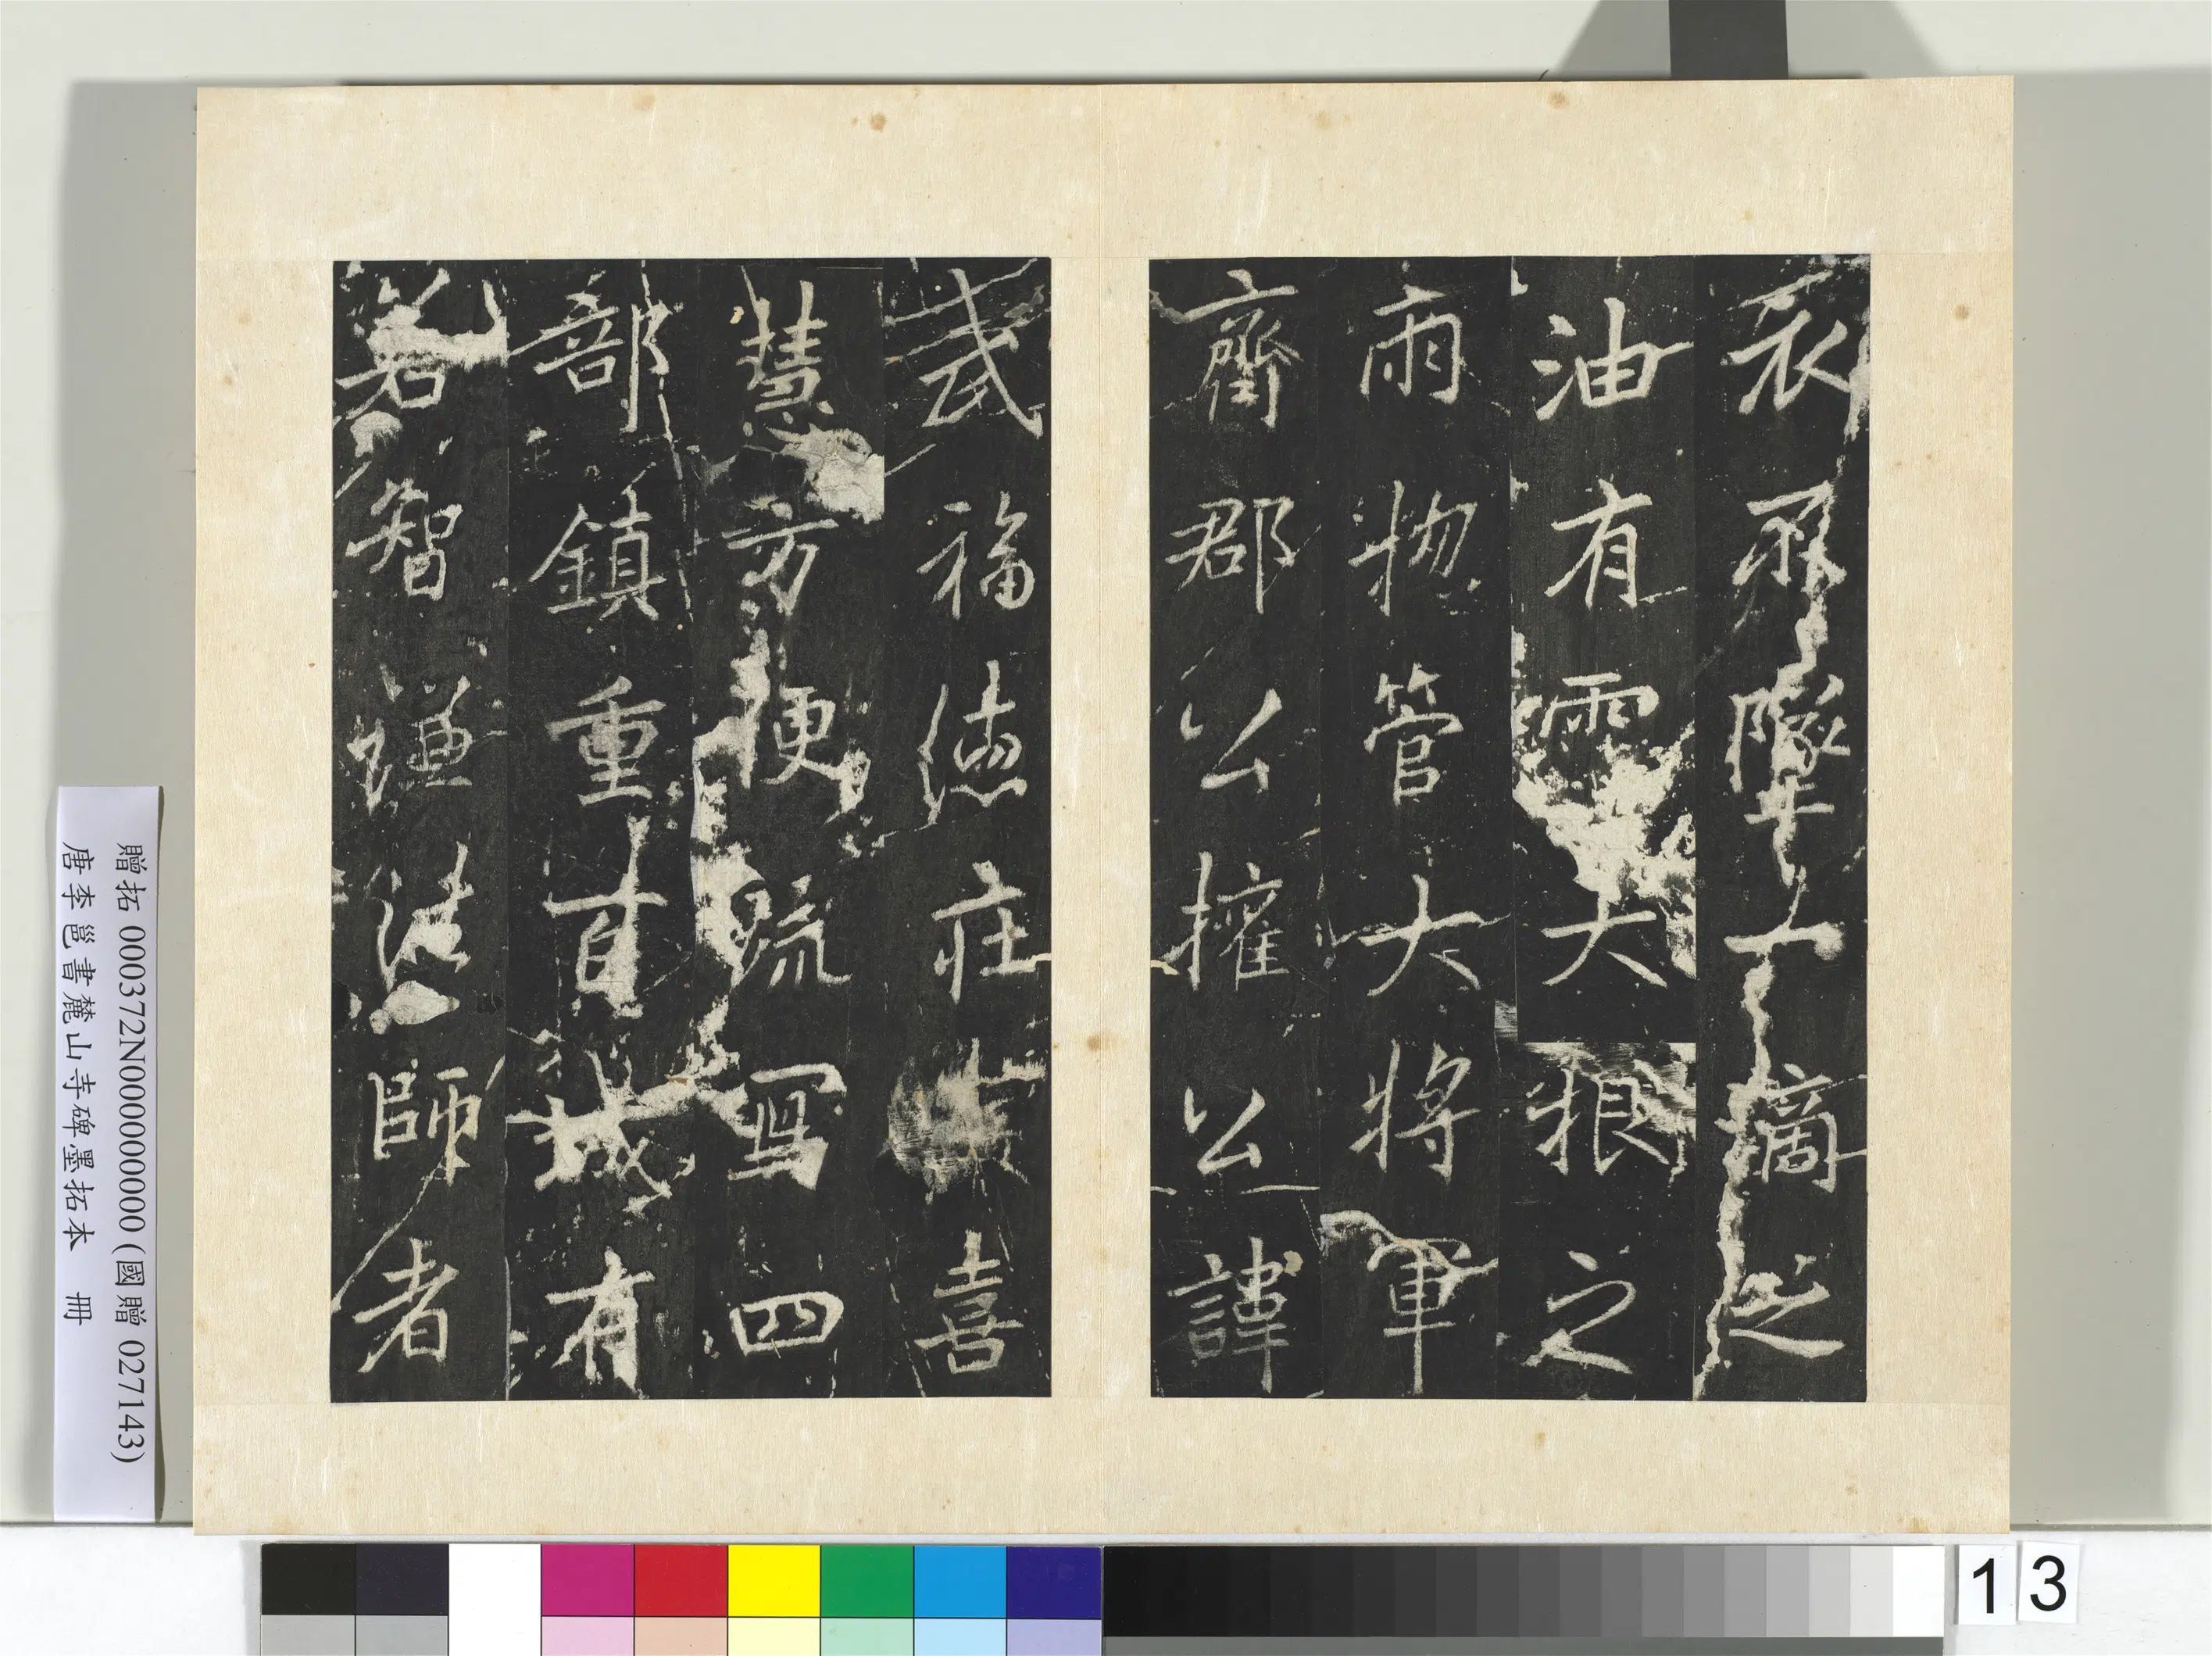 衣不墜一滴之
油有霑大根之
雨揔管大將軍
齊郡公權公諱
武福德庄喜
慧方便疏寫四
部鎮重百城有
若智謙法師者
贈拓 000372N000000000 (國贈 027143)
唐李邕書麓山寺碑墨拓本 冊
13